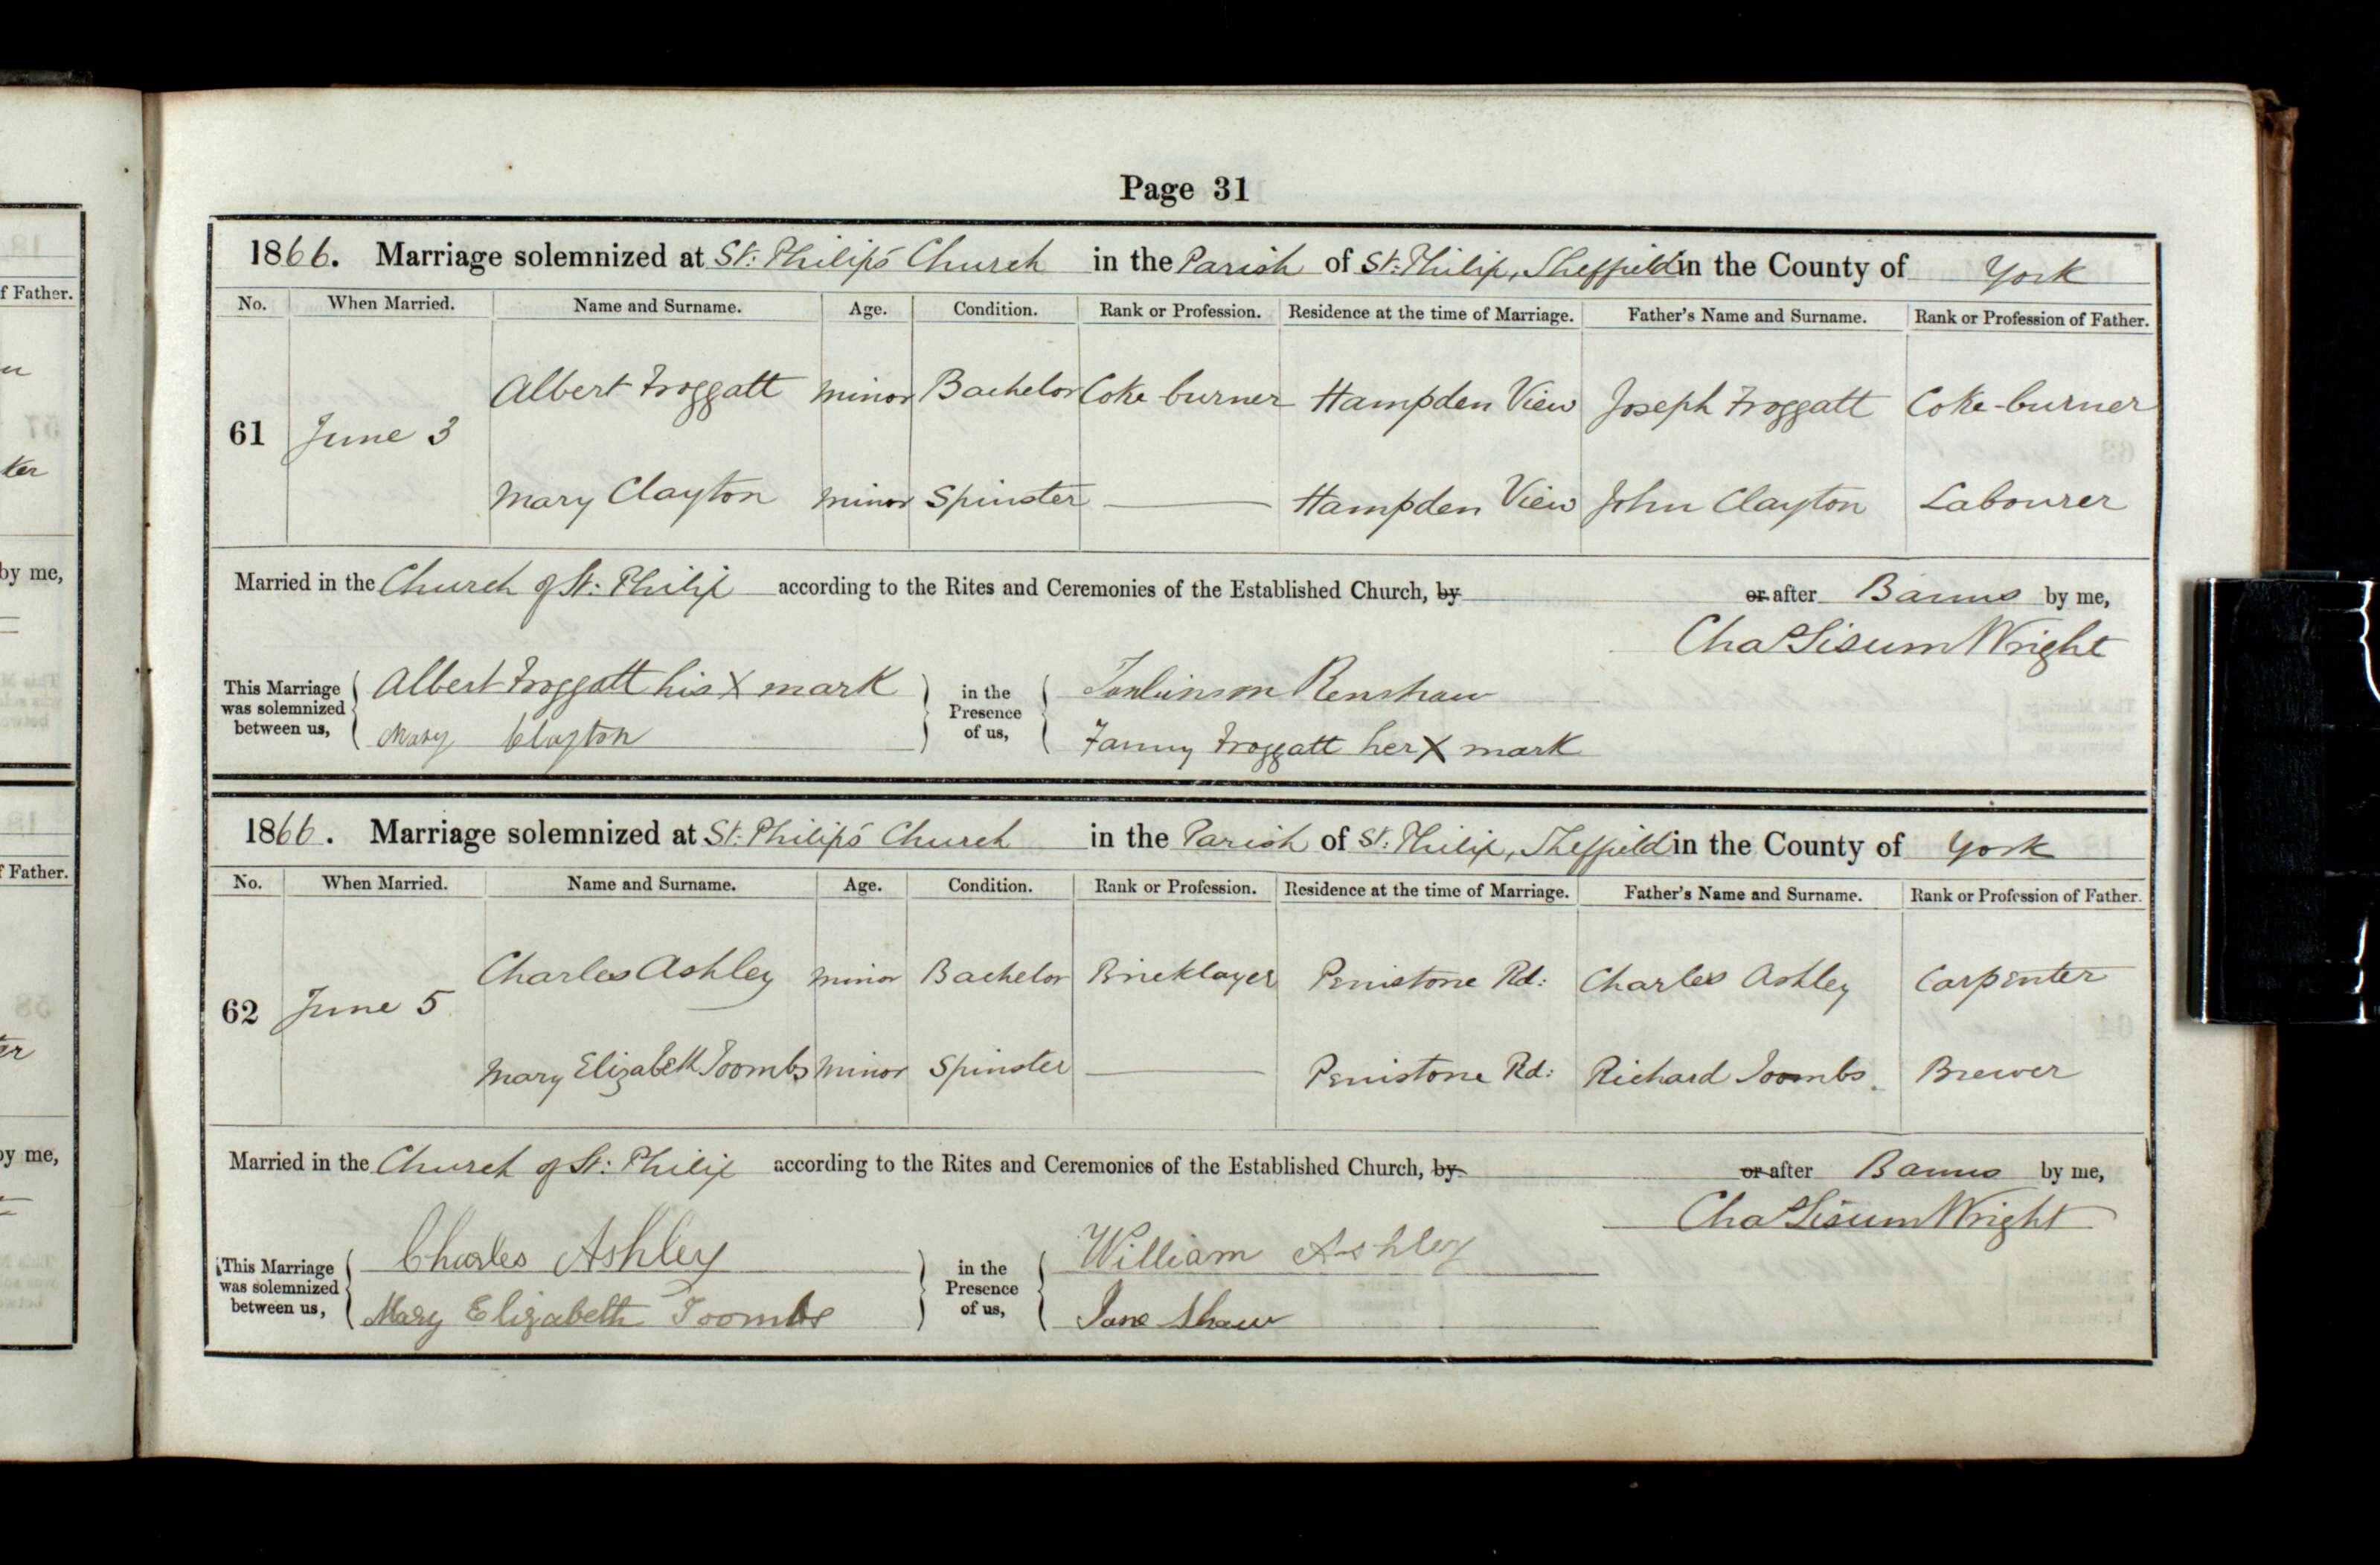 Page 31
1866. Marriage solemnized at St: Philip's Church in the Parish of St: Philip, Sheffield in the County of York
No. When Married. Name and Surname. Age. Condition. Rank or Profession. Residence at the time of Marriage. Father's Name and Surname. Rank or Profession of Father.
Albert Froggatt minor Bachelor Coke-burner Hampden View Joseph Froggatt Coke-burner
61 June 3
Mary Clayton minor Spinster Hampden View John Clayton Labourer
Married in the Church of St: Philip according to the Rites and Ceremonies of the Established Church, by or after Banns by me,
Chas Sisum Wright
This Marriage was solemnized between us, Albert Froggatt his X mark in the Presence of us, Tomlinson Renshaw
Mary Clayton Fanny Froggatt her X mark
1866. Marriage solemnized at St: Philip's Church in the Parish of St: Philip, Sheffield in the County of York
No. When Married. Name and Surname. Age. Condition. Rank or Profession. Residence at the time of Marriage. Father's Name and Surname. Rank or Profession of Father.
Charles Ashley minor Bachelor Bricklayer Penistone Rd: Charles Ashley Carpenter
62 June 5
Mary Elizabeth Toombs minor Spinster Penistone Rd: Richard Toombs. Brewer
Married in the Church of St: Philip according to the Rites and Ceremonies of the Established Church, by or after Banns by me,
Chas Sisum Wright
This Marriage was solemnized between us, Charles Ashley in the Presence of us, William Ashley
Mary Elizabeth Toombs Jane Shaw
f Father.
ker
by me,
f Father.
er
by me,